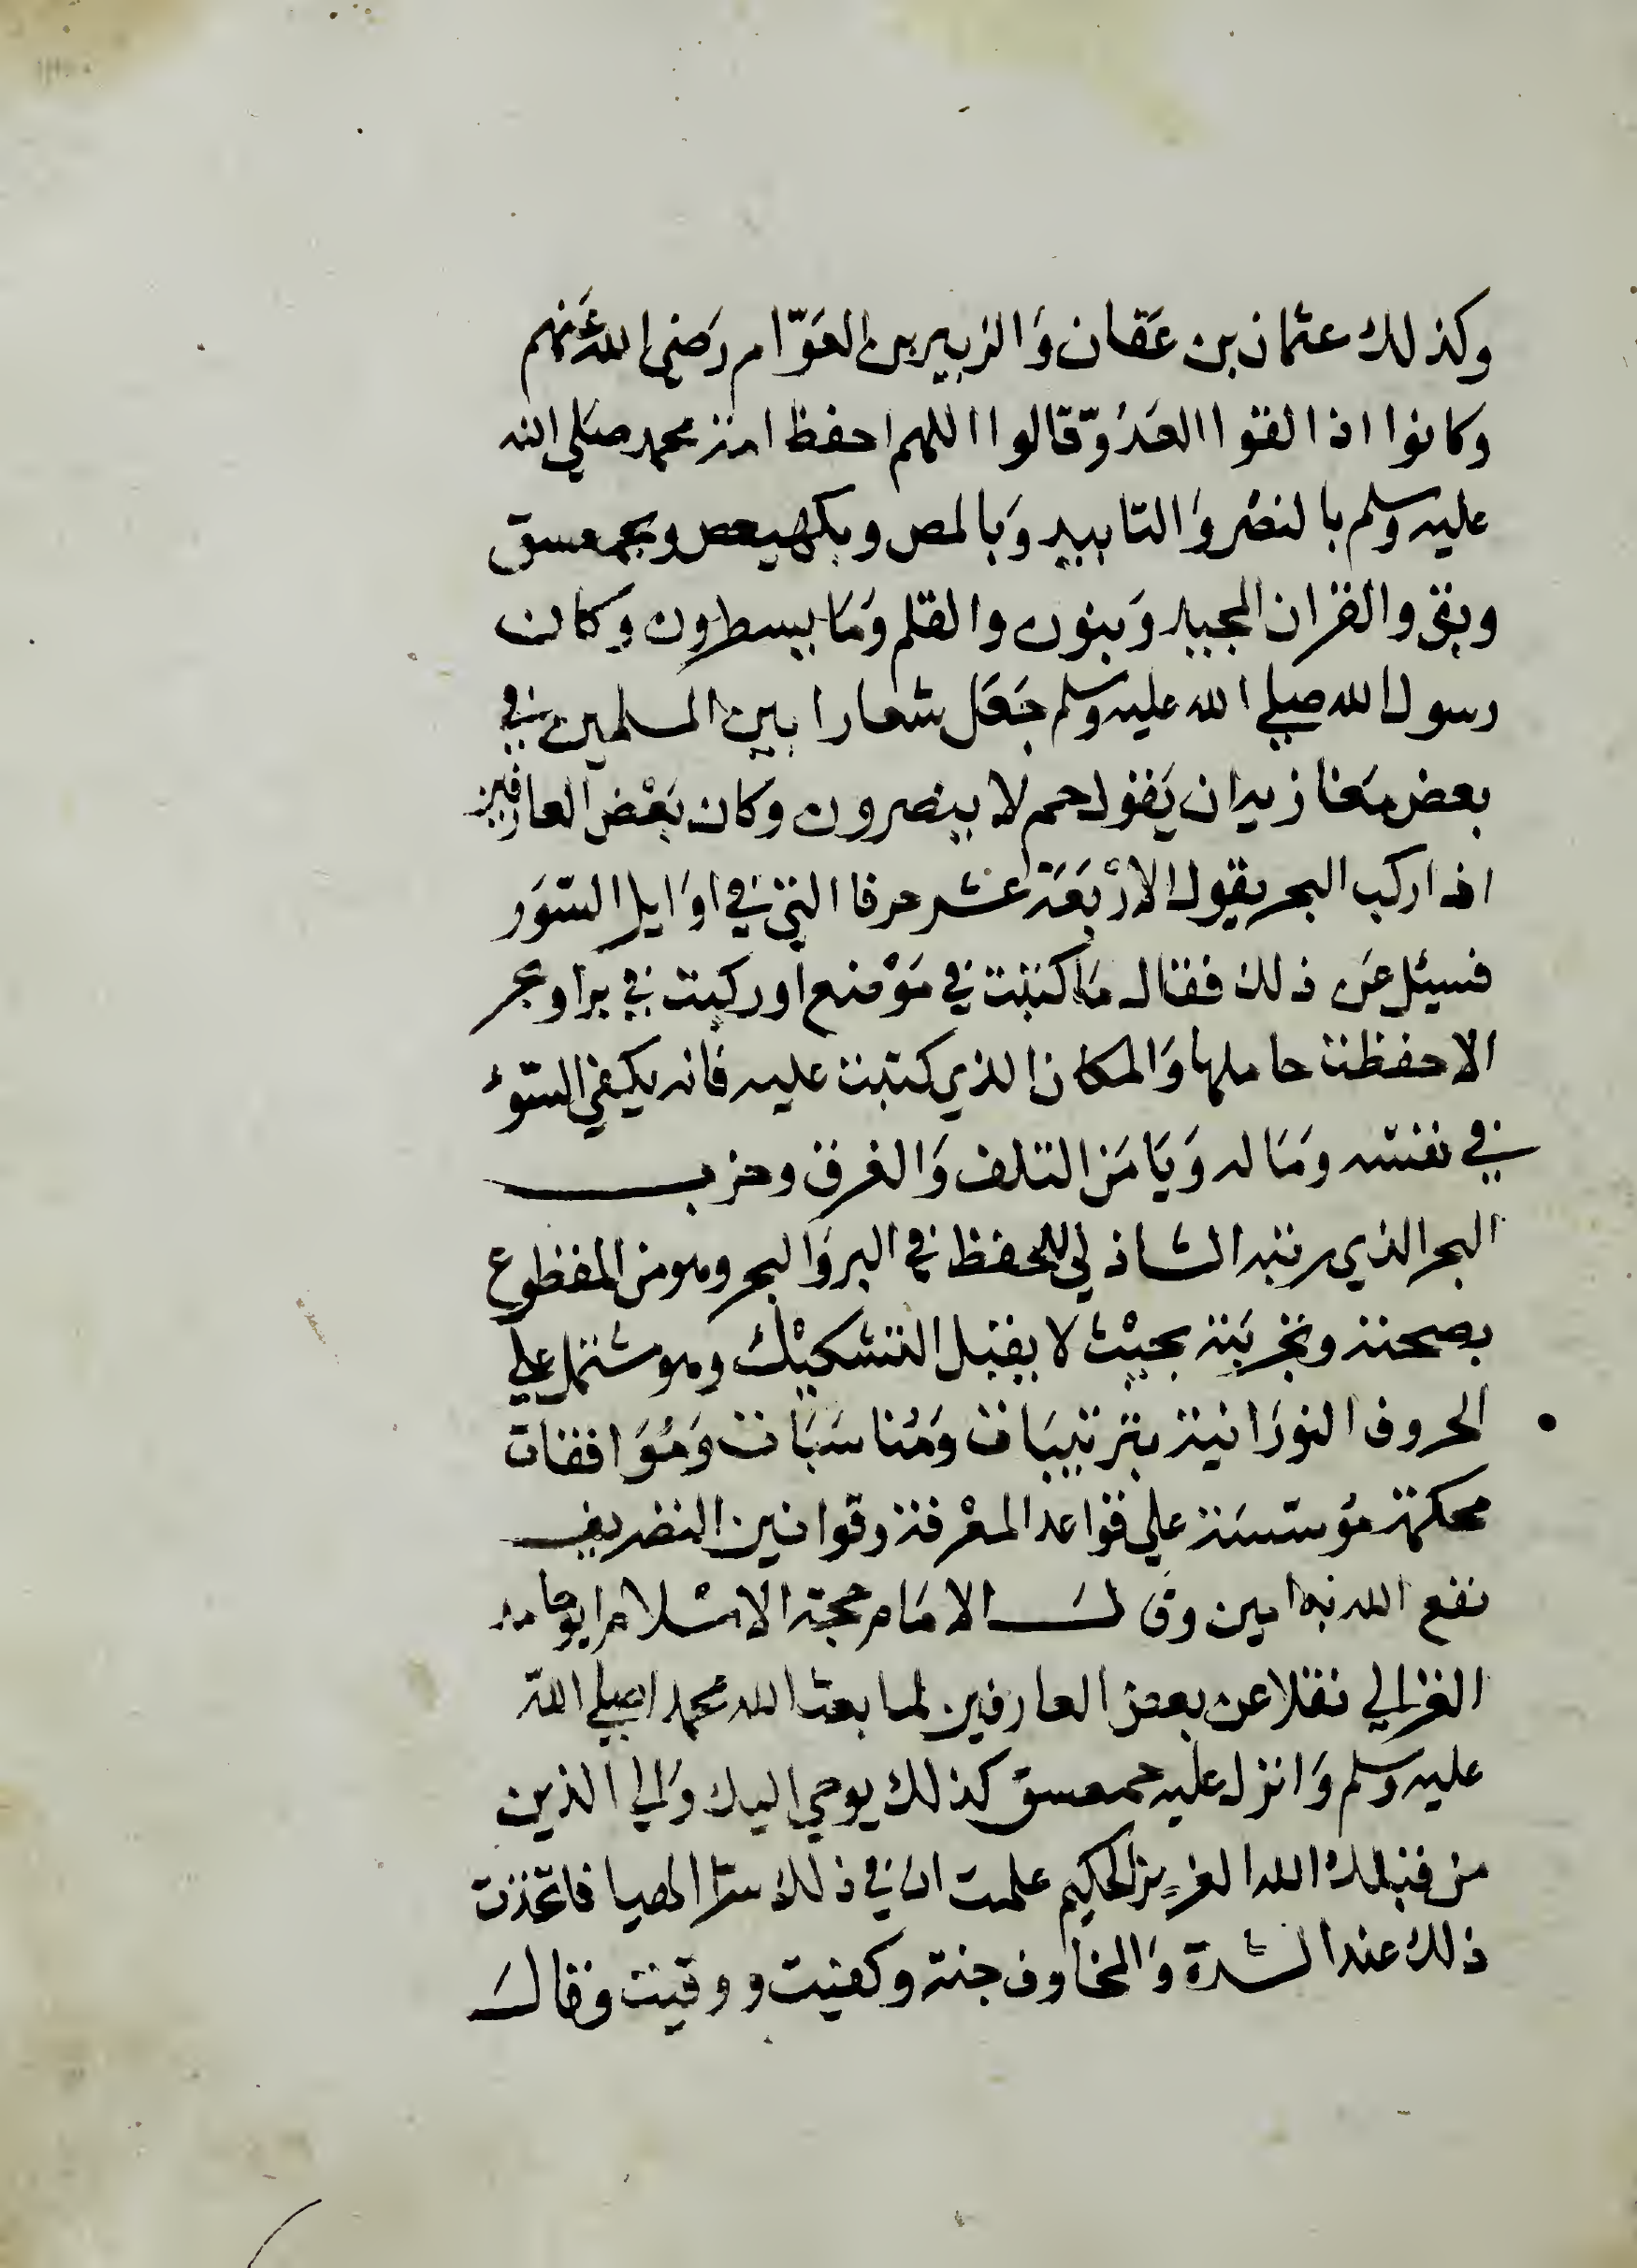 وكذلك عثمان بن عَفان وَالزبير بن العَوّام رَضي الله عَنهم
وَكانوا اذا لقوا العَدُوّ قالوا اللهم احفظ امة محمد صَلي الله
عليه وسلم بالنصْر وَالتاييد وَبالمص وبكهيعص وبحمعسق
وبق والقران المجيد وَبنون والقلم وَمَا يسطرون وكان
رسول الله صلي الله عليه وسلم جَعَل شعارا بين المسلمين في
بعض مَغازيه ان يَقول حم لا ينصرون وكان بَعْض العارفين
اذا ركب البحر يقول الارْبَعَة عشر حرفا التي في اوَايل السّوَر
فسيُل عَن ذلك فقال مَا كتبت في مَوْضع اوركبت في بر او بحر
الا حفظت حاملها وَالمكان الذي كتبت عليه فانه يكفي السّوء
في نفسه ومَاله وَيَامَن التلف وَالغرق وحزب
البحر الذي رتبه الشاذلي للحفظ في البر وَالبحر وهو من المقطوع
بصحته وتجربَته بحيْث لا يقبل التشكيْك وهو مشتمل علي
الحروف النورَانية بترتيبَات ومُناسَبَات وَمُوَافقات
محكمة مُوسّسَة علي قواعد المعْرفة وقوانين التصريف
نفع الله به امين وقالَ الامَام حجة الاسْلام ابو حامد
الغزالي نقلا عن بعض العارفين لما بعث الله محمدا صلي الله
عليه وسلم وَانزل عليه حمعسق كذلك يوحي اليك وَالي الذين
من قبلك الله العزيز الحكيم علمت ان في ذلك سرّا الهيا فاتخذت
ذلك عند الشدة وَالمخاوف جنة وكفيت ووقيت وقالَ